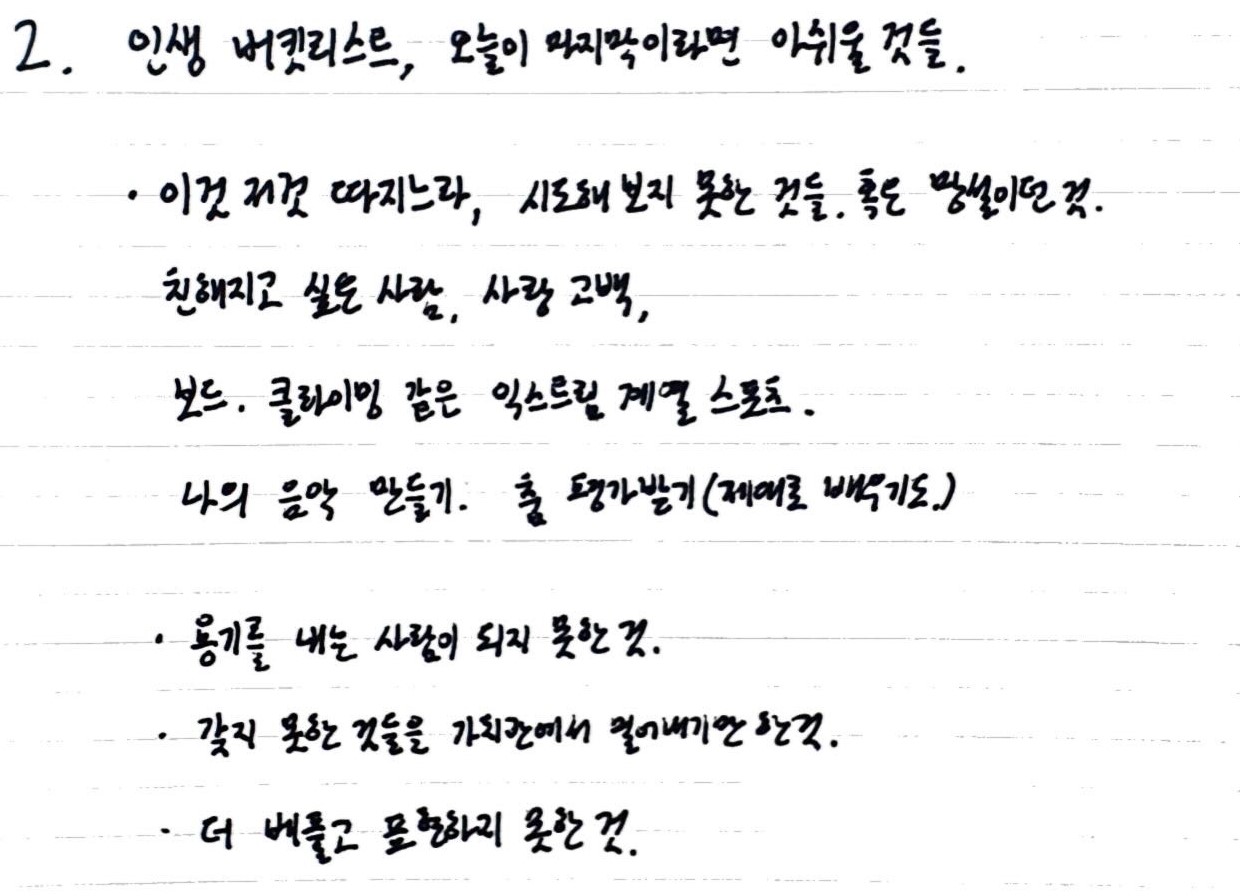 2. 인생 버킷리스트, 오늘이 마지막이라면 아쉬울 것들.
· 이것 저것 따지느라, 시도해 보지 못한 것들. 혹은 망설이던 것.
친해지고 싶은 사람, 사랑 고백,
보드. 클라이밍 같은 익스트림 계열 스포츠.
나의 음악 만들기. 춤 평가받기(제대로 배우기도.)
· 용기를 내는 사람이 되지 못한 것.
· 갖지 못한 것들을 가치관에서 밀어내기만 한 것.
· 더 베풀고 표현하지 못한 것.